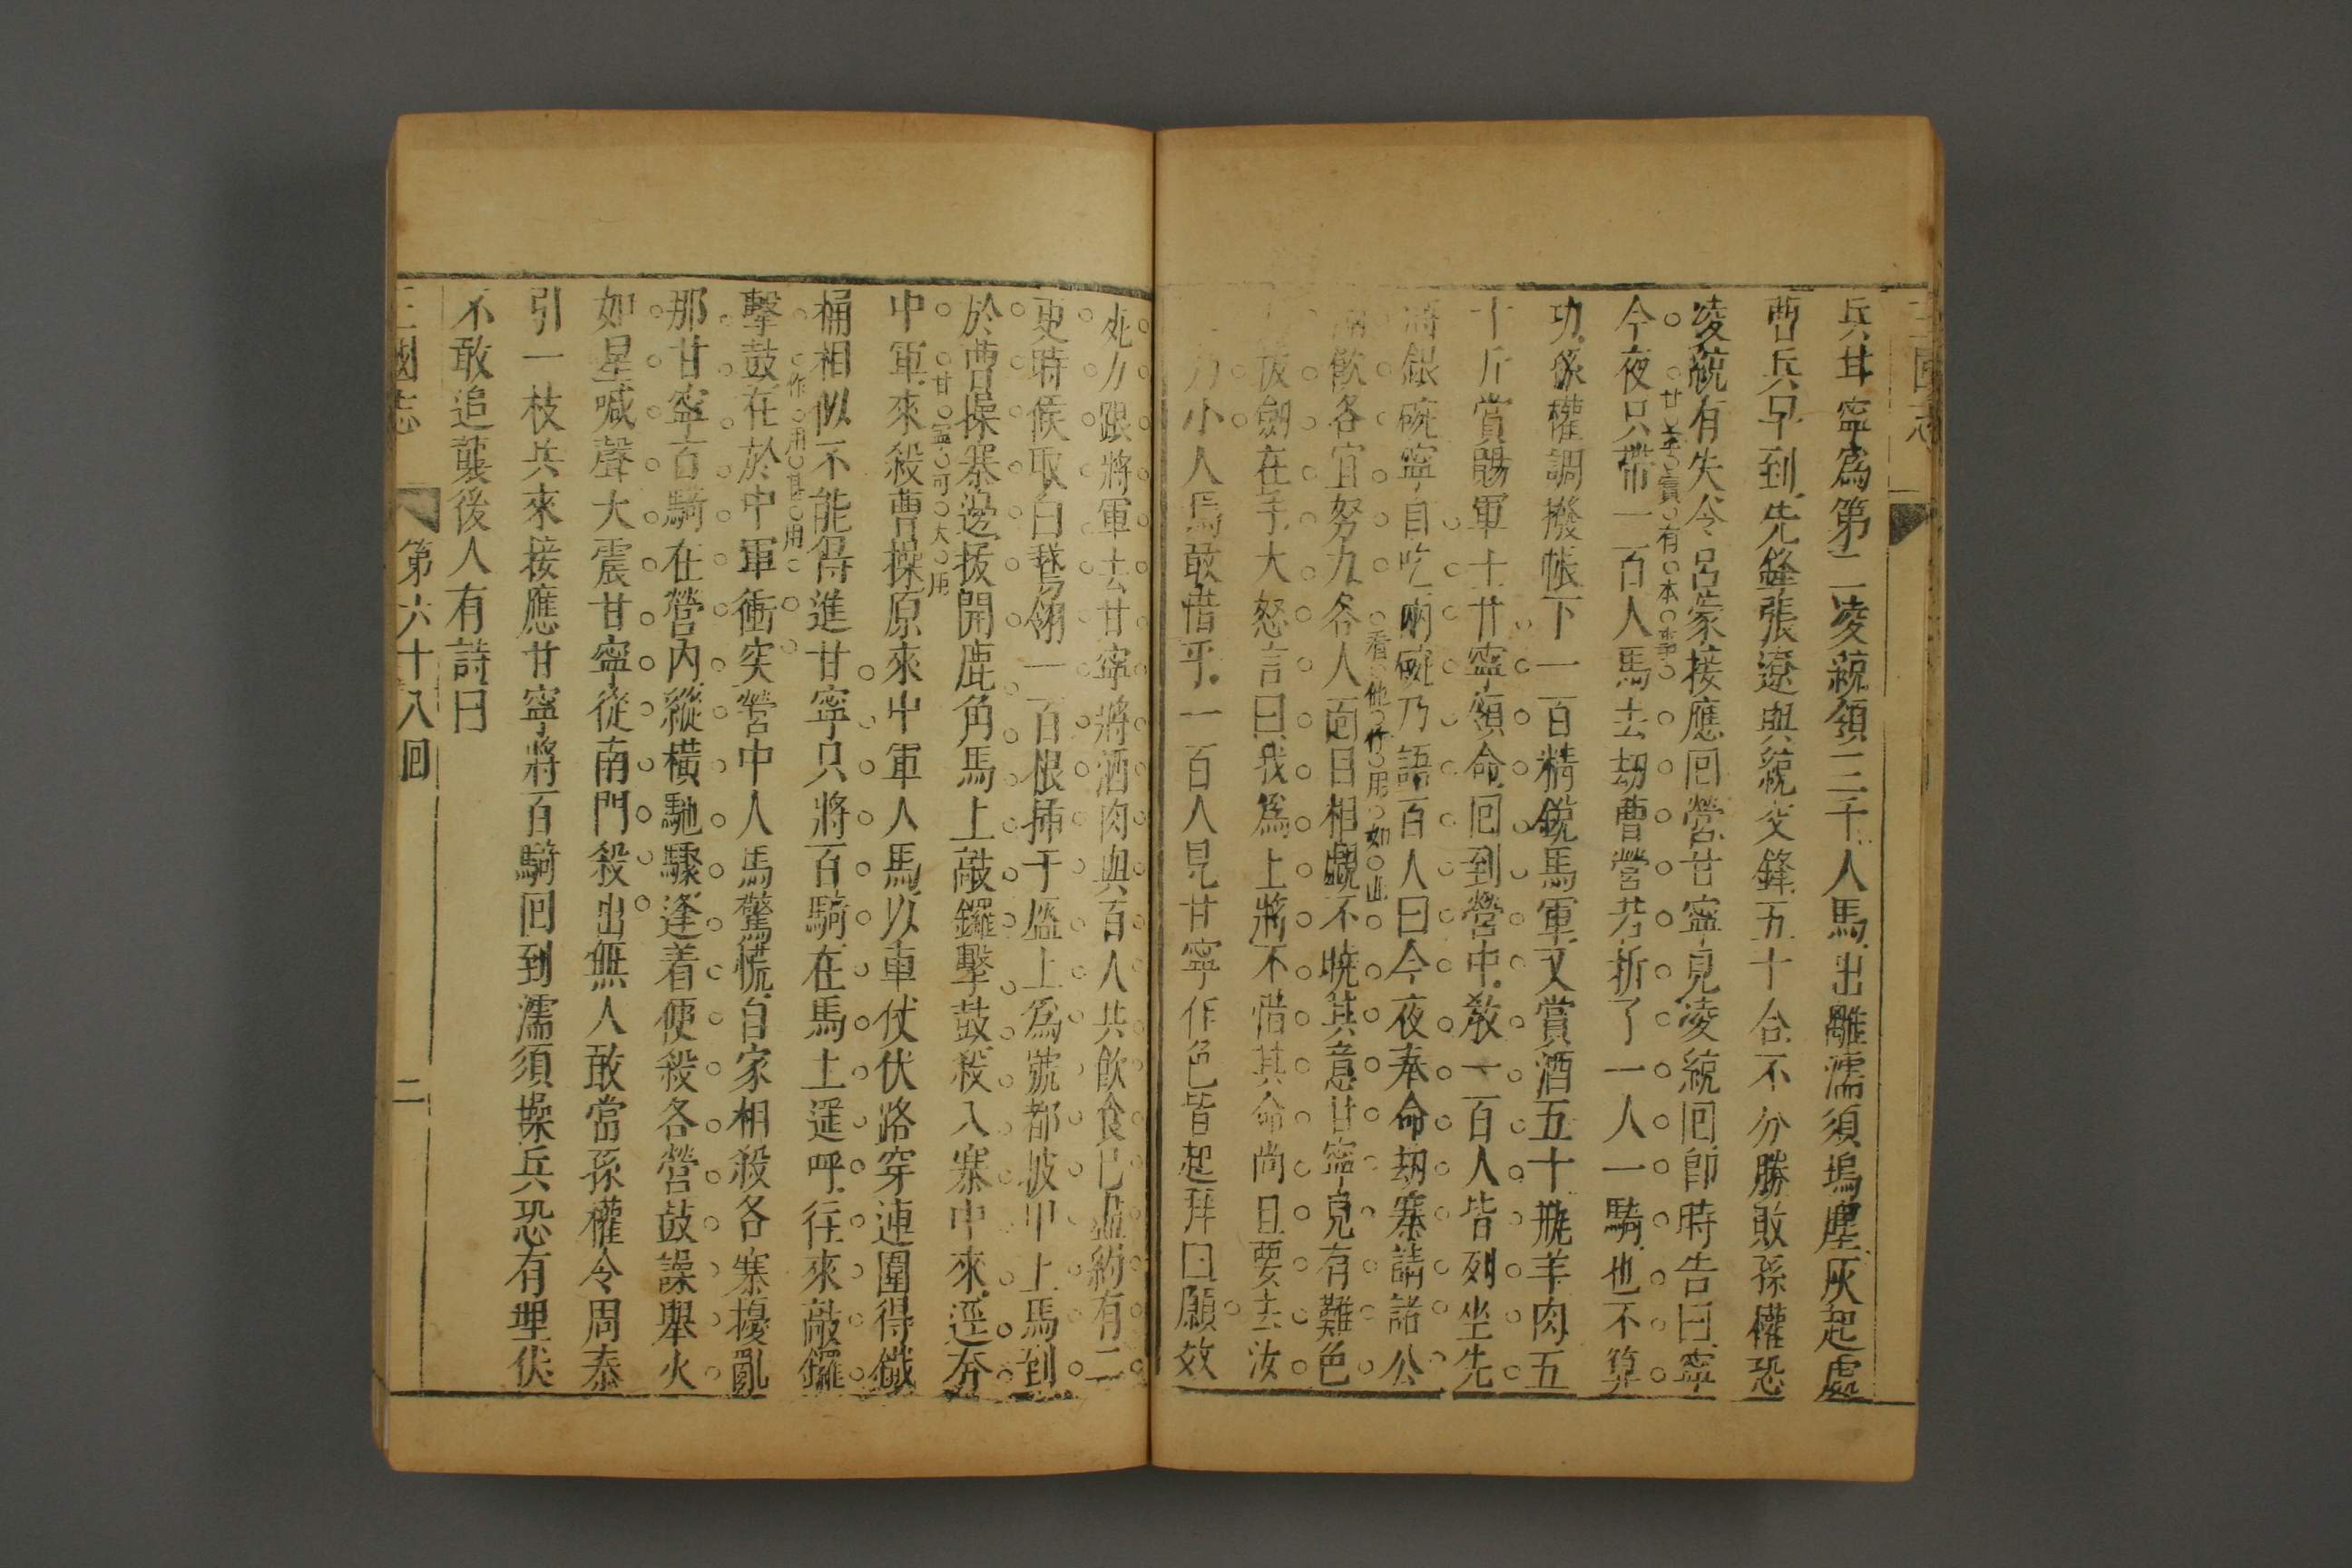 三國志
兵甘寧爲第二凌統領三千人馬出離濡須塢塵灰起處
曹兵早到先鋒張遼與統交鋒五十合不分勝敗孫權恐
凌統有失令呂蒙接應回營甘寧見凌統回即時告曰寧
甘寧實有本事
今夜只帶一百人馬去劫曹營若折了一人一騎也不算
功孫權調撥帳下一百精銳馬軍又賞酒五十瓶羊肉五
十斤賞賜軍士甘寧領命回到營中教一百人皆列坐先
將銀碗寧自吃兩碗乃語百人曰今夜奉命劫寨請諸公
看他作用如此
滿飲各宜努力各人面目相覷不曉其意甘寧見有難色
拔劍在手大怒言曰我爲上將不惜其命尚且要去汝
乃小人焉敢惜乎一百人見甘寧作色皆起拜曰願效
死力跟將軍去甘寧將酒肉與百人共飲食已盡約有二
更時候取白鵞翎一百根揷于盔上爲號都披甲上馬到
於曹操寨邊拔開鹿角馬上敲鑼擊鼓殺入寨中來逕奔
甘寧可大用
中軍來殺曹操原來中軍人馬以車仗伏路穿連圍得鐵
桶相似不能得進甘寧只將百騎在馬上遥呼往來敲鑼
作用甚用
擊鼓在於中軍衝突營中人馬驚慌自家相殺各寨擾亂
那甘寧百騎在營內縱橫馳驟逢着便殺各營鼓譟舉火
如星喊聲大震甘寧從南門殺出無人敢當孫權令周泰
引一枝兵來接應甘寧將百騎回到濡須操兵恐有埋伏
不敢追襲後人有詩曰
三國志 第六十八回 二